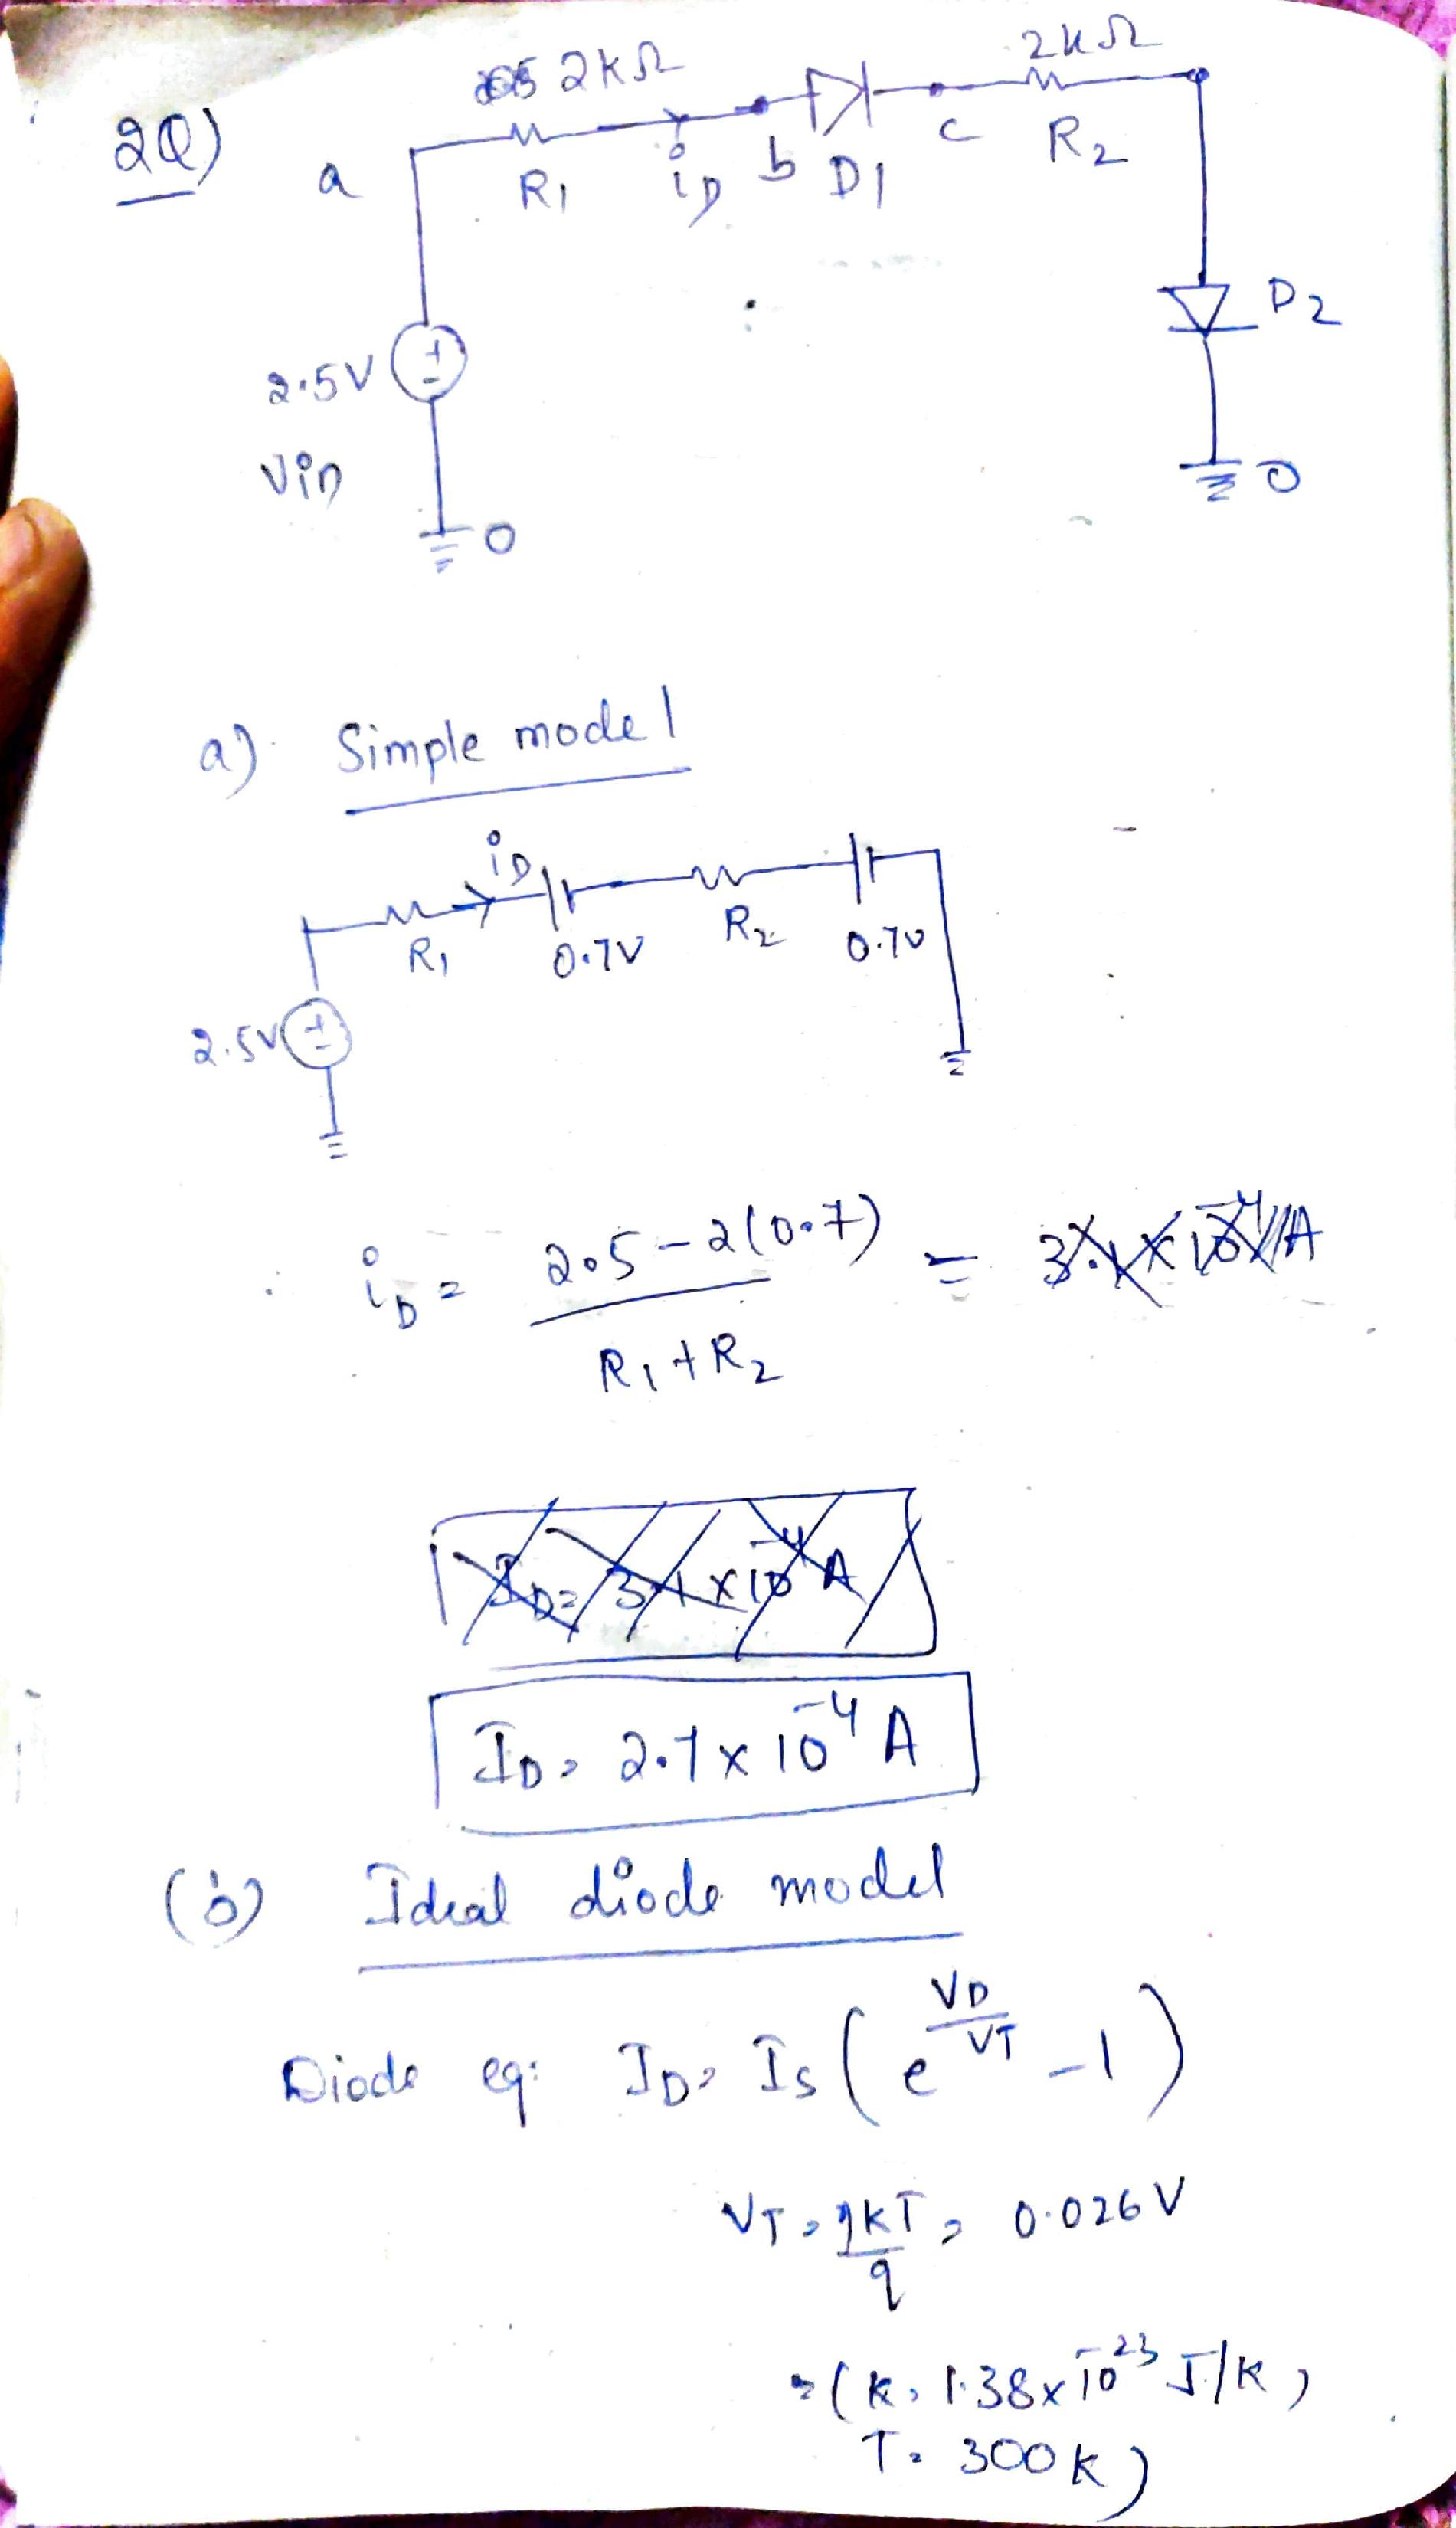 2Q)
2kΩ
2kΩ
a
R1
iD
b
D1
c
R2
2.5V
+
-
Vin
0
D2
0
a) Simple model
iD
R1
0.7V
R2
0.7V
2.5V
+
-
iD = 2.5 - 2(0.7) / R1 + R2 = 3.1 x 10^-4 A
ID = 3.1 x 10^-4 A
ID = 2.7 x 10^-4 A
(b) Ideal diode model
Diode eq: ID = Is (e^(VD/VT) - 1)
VT = ηkT/q = 0.026V
= (k = 1.38 x 10^-23 J/K,
T = 300K)